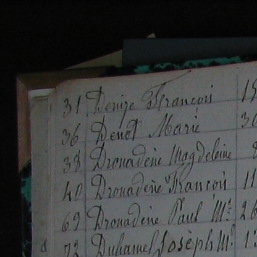 31 Denize François 19
36 Denot Marie 30
38 Dronadène Magdeleine 8
40 Dronadène François 11
69 Dronadène Paul Mr. 26
72 Duhamel Josèph M 1